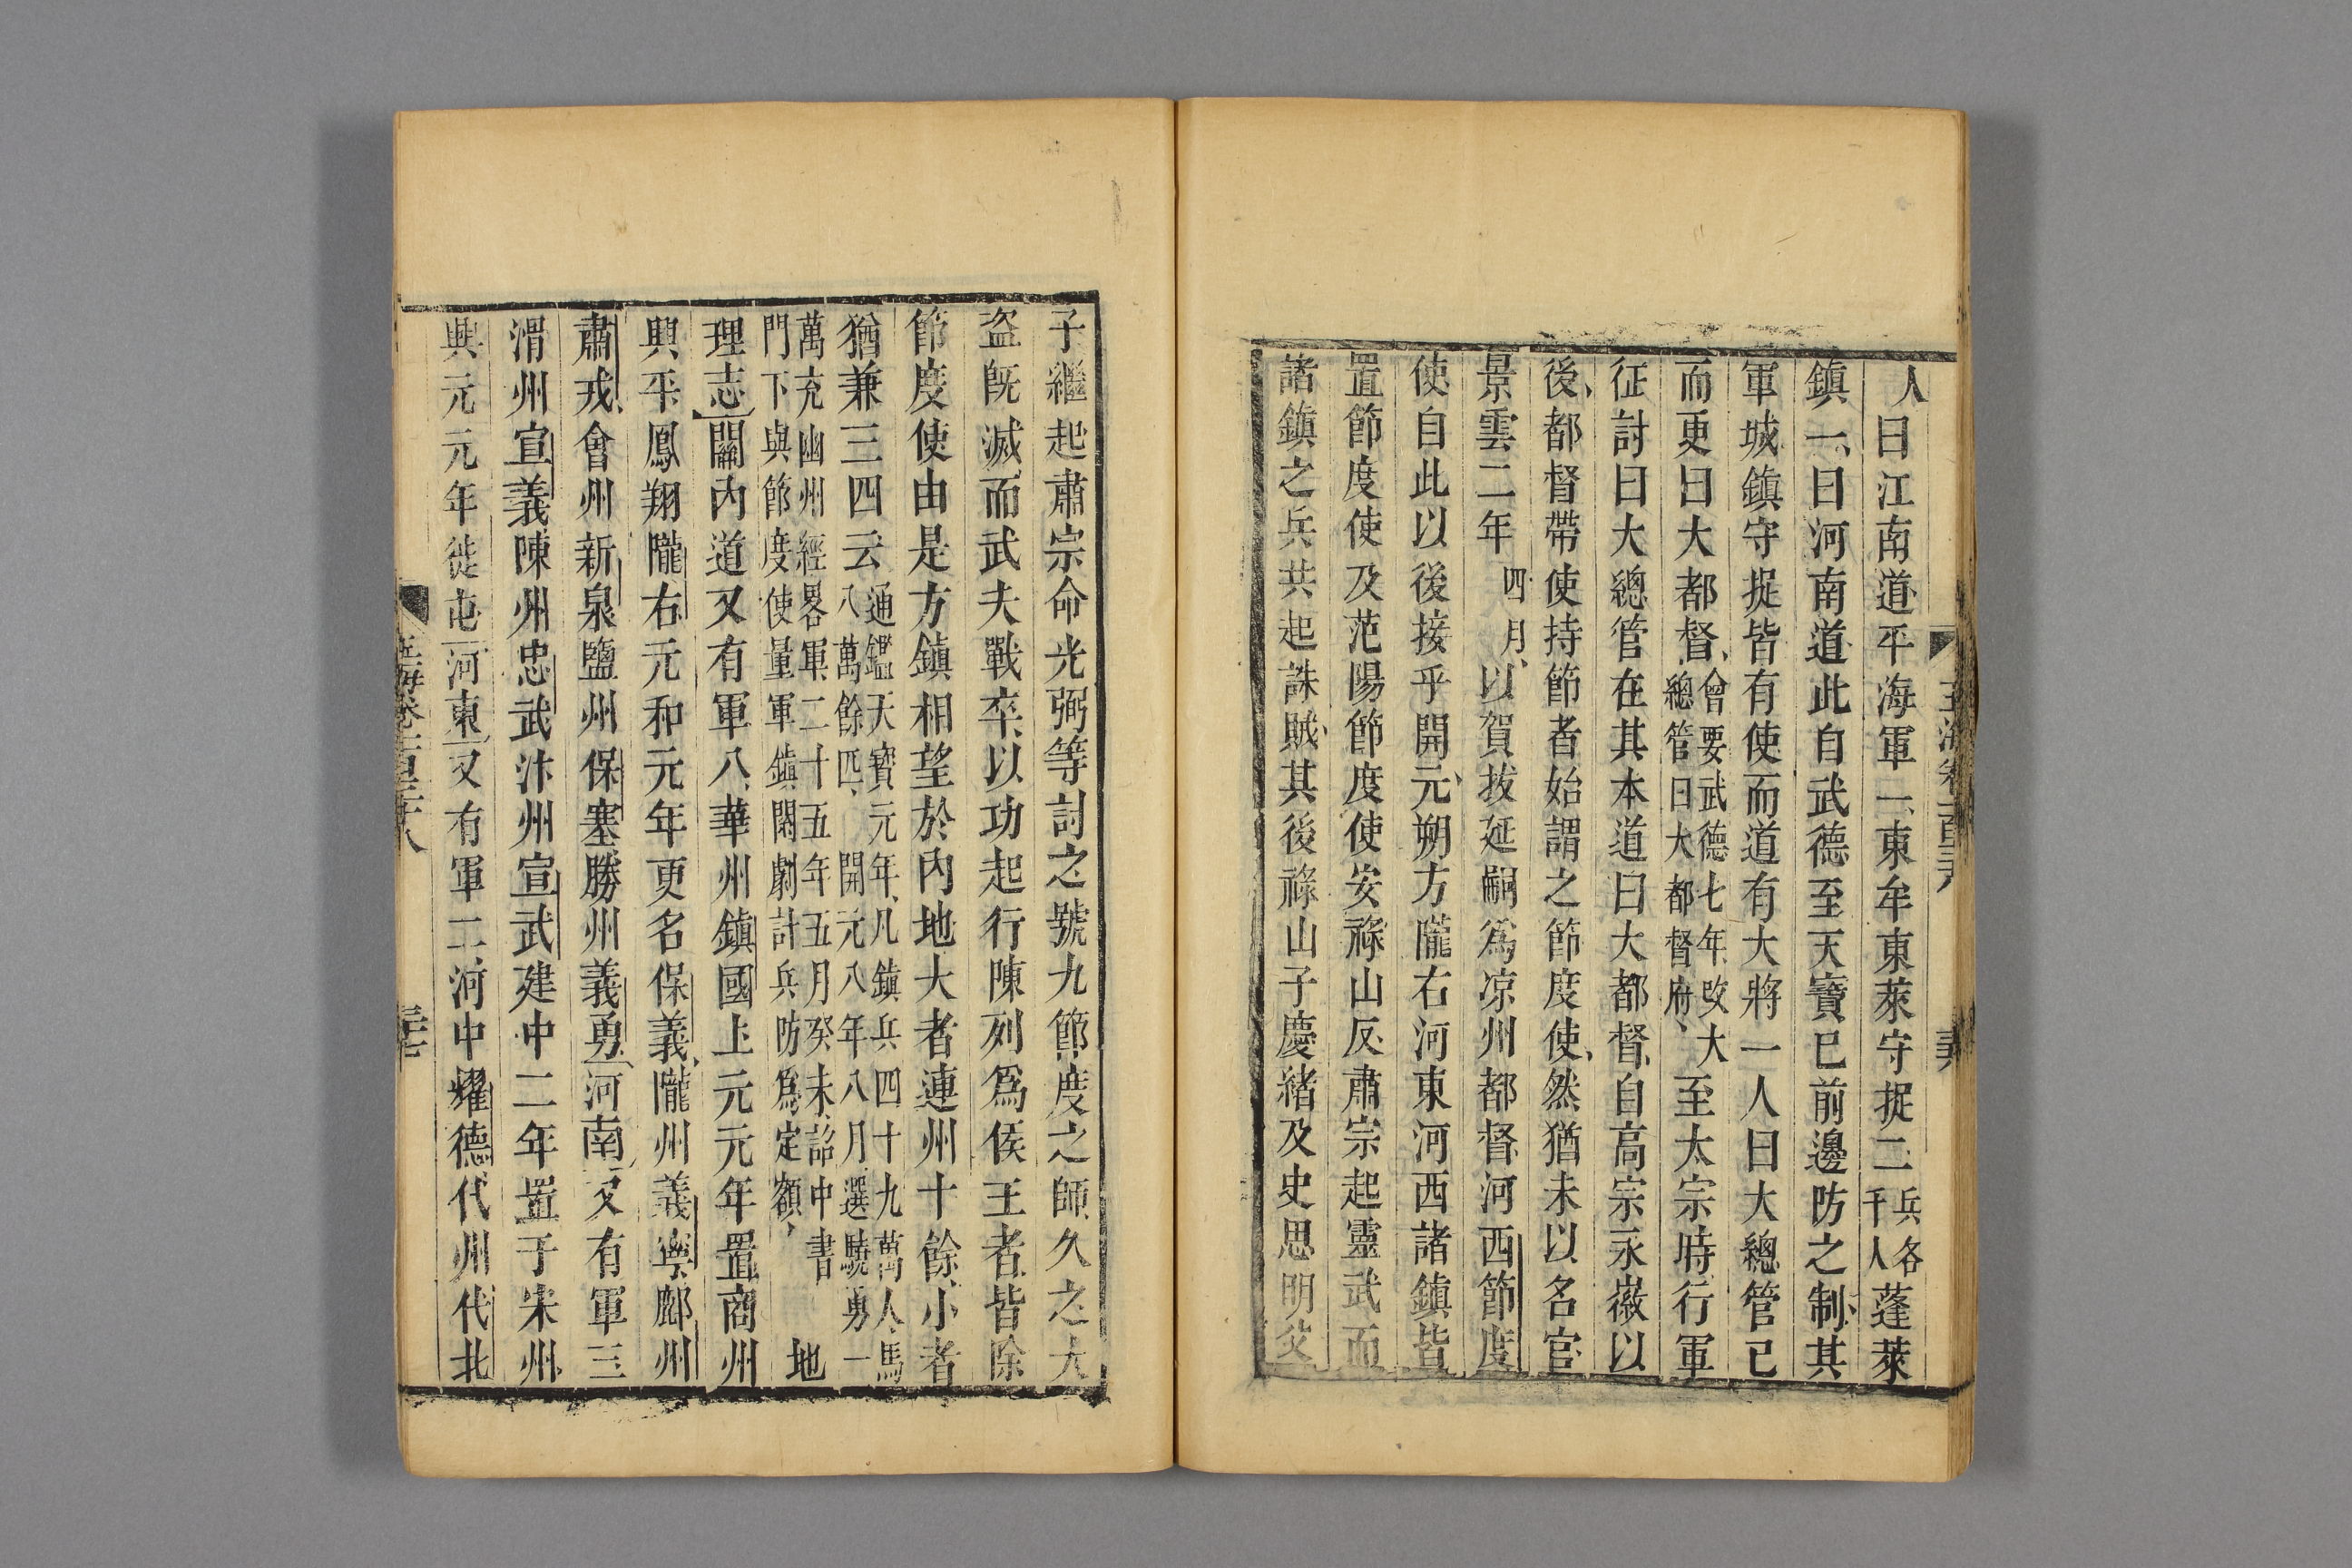 人曰江南道平海軍一東牟東萊守捉二兵各千人蓬萊
鎮一曰河南道此自武德至天寶已前邊防之制其
軍城鎮守捉皆有使而道有大將一人曰大總管已
而更曰大都督會要武德七年改大總管曰大都督府至太宗時行軍
征討曰大總管在其本道曰大都督自高宗永徽以
後都督帶使持節者始謂之節度使然猶未以名官
景雲二年四月以賀拔延嗣為凉州都督河西節度
使自此以後接乎開元朔方隴右河東河西諸鎮皆
置節度使及范陽節度使安祿山反肅宗起靈武而
諸鎮之兵共起誅賊其後祿山子慶緒及史思明父
子繼起肅宗命光弼等討之號九節度之師久之大
盜既滅而武夫戰卒以功起行陳列為侯王者皆除
節度使由是方鎮相望於內地大者連州十餘小者
猶兼三四云通鑑天寶元年凡鎮兵四十九萬人馬八萬餘匹開元八年八月選驍勇一
萬充幽州經畧軍二十五年五月癸未詔中書門下與節度使量軍鎮閑劇計兵防為定額地
理志關內道又有軍八華州鎮國上元元年置商州
興平鳳翔隴右元和元年更名保義隴州義寧鄜州
肅戎會州新泉鹽州保塞勝州義勇河南又有軍三
滑州宣義陳州忠武汴州宣武建中二年置于宋州
興元元年徙屯河東又有軍二河中耀德代州代北
玉海卷一百三十八
三十七